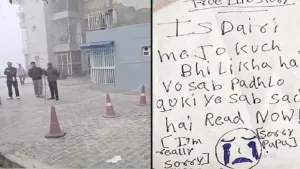 True Life Story
IS Dairi
me Jo kuch
Bhi Likha ha
vo sab Padhlo
quki ye sab sach
hai Read Now!
[I'm
really
sorry]
[sorry
Papa]